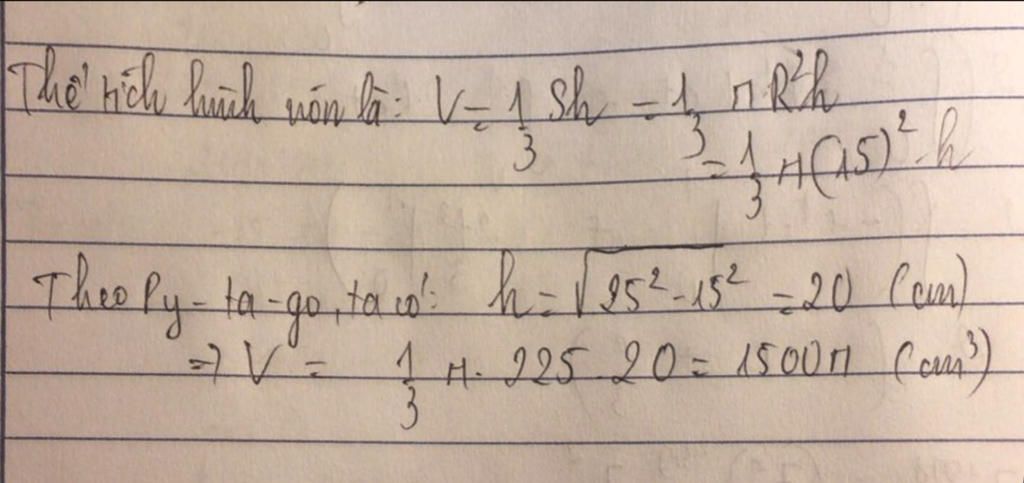 Thể tích hình nón là: V = 1/3 Sh = 1/3 π R²h
= 1/3 π (15)² . h
Theo Py-ta-go, ta có: h = √25² - 15² = 20 (cm)
=> V = 1/3 π . 225 . 20 = 1500π (cm³)